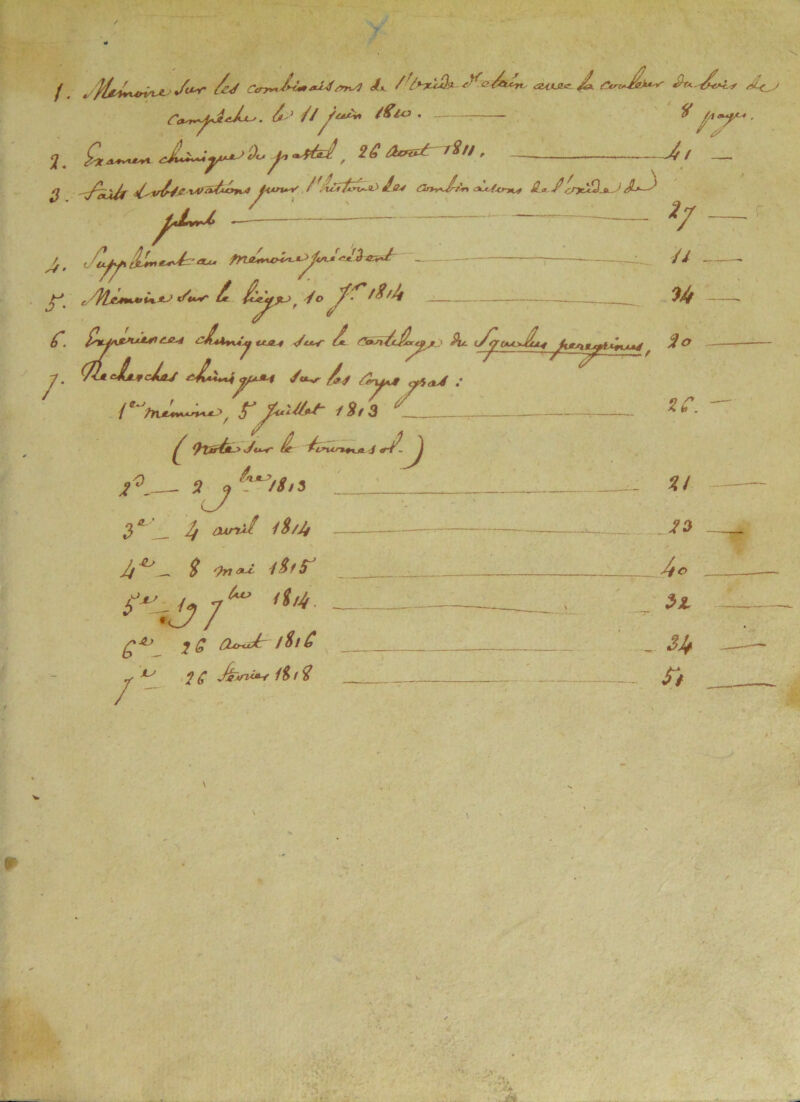 1. Mémoire sur les combinaisons de l'oxide d'étain avec la couleur du bois de
Campêche. le 11 juin 1810. 8 pages.
2. Examen chimique du pastel, 26 Aout 1811, 41
3. faits & observations pour l'histoire des combinaisons de l'oxide de
plomb 27
4. Supplément au mémoire précédent 11
5. Mémoire sur le liége, 10 Jr 1814 34
6. Expériences chimiques sur le cartilage du Squalus peregrinus, 20
7. Recherches chimiques sur les Corps gras :
1er mémoire, 5 Juillet 1813 26.
( Note sur le tournesol. )
2e 2 9bre 1813 21
3e 4 avril 1814 23
4e 8 mai 1815 40
5e 19 7bre 1814. 32
6e 26 Aout 1816 34
7e 26 février 1818 51